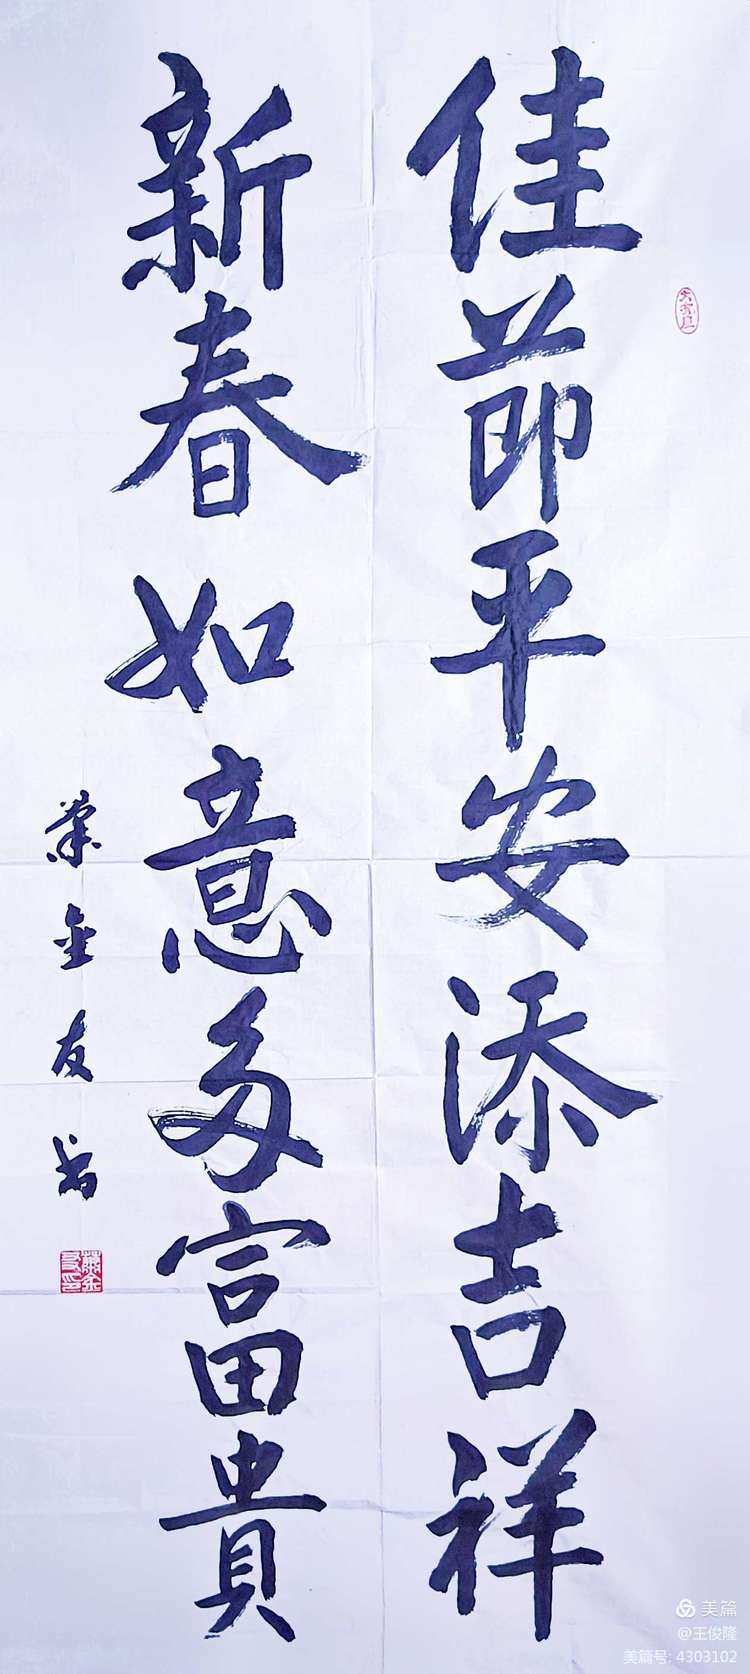 佳節平安添吉祥
新春如意多富貴
金友书
美篇
@王俊隆
美篇号: 4303102